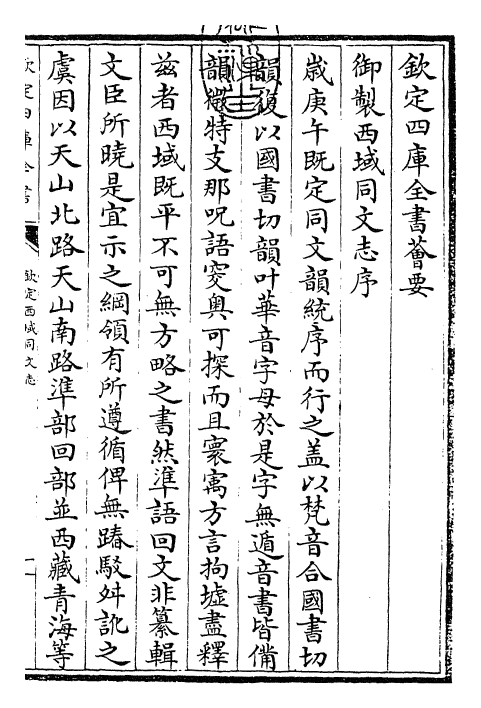 欽定四庫全書薈要
御製西域同文志序
歲庚午既定同文韻統序而行之蓋以梵音合國書切
韻復以國書切韻叶華音字母於是字無遁音書皆備
韻徵特支那呪語窔奥可探而且寰㝢方言拘墟盡釋
兹者西域既平不可無方略之書然準語回文非纂輯
文臣所曉是宜示之綱領有所遵循俾無踳駁舛訛之
虞因以天山北路天山南路準部回部並西藏青海等
欽定四庫全書
欽定西域同文志
一